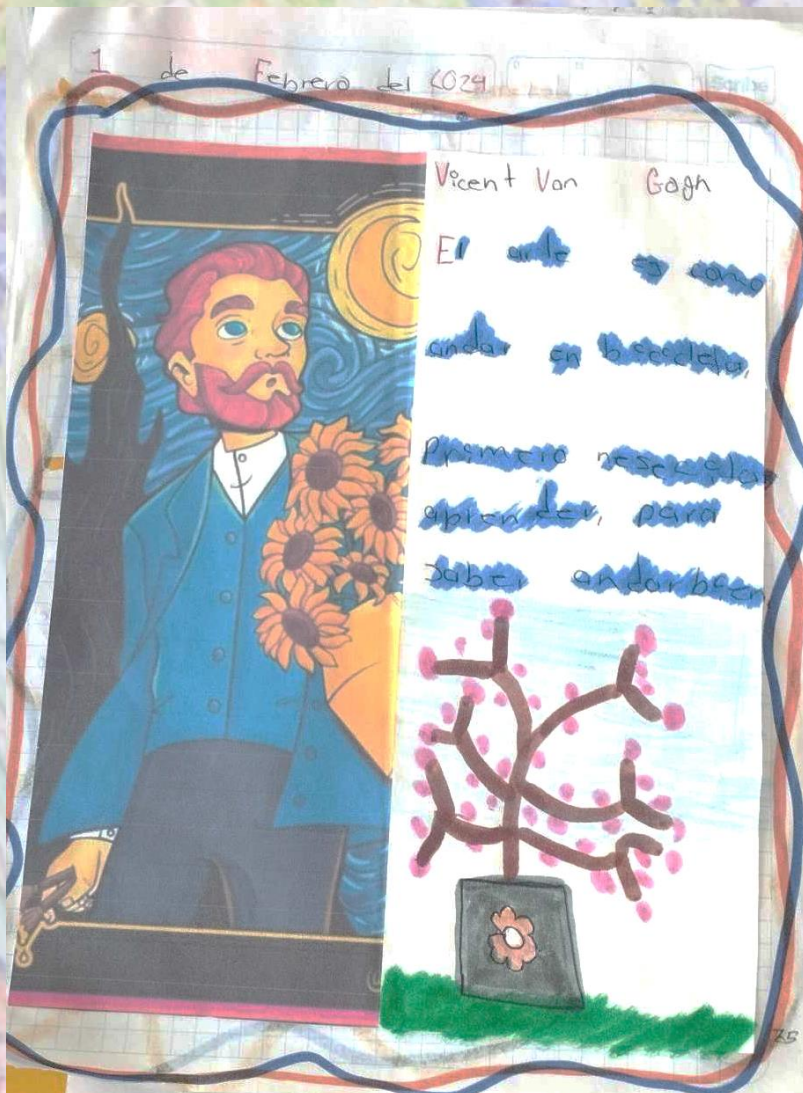 1 de Febrero del 2024
Scribe
Vicent Van Gogh
El arte es como
andar en bicicleta,
Primero nesecitas
aprender, para
saber andar bien
75